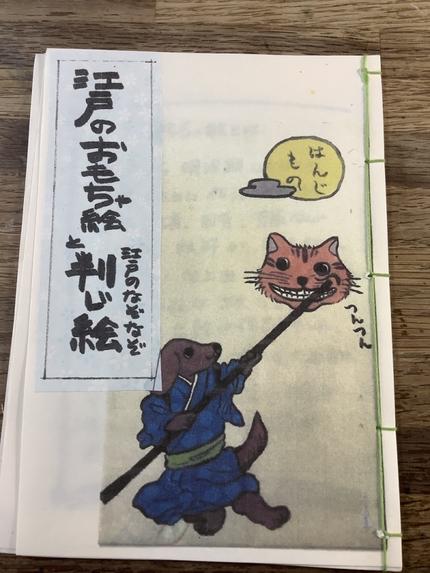 江戸のおもちゃ絵
と判じ絵
江戸のなぞなぞ
はんじ
もの
つんつん